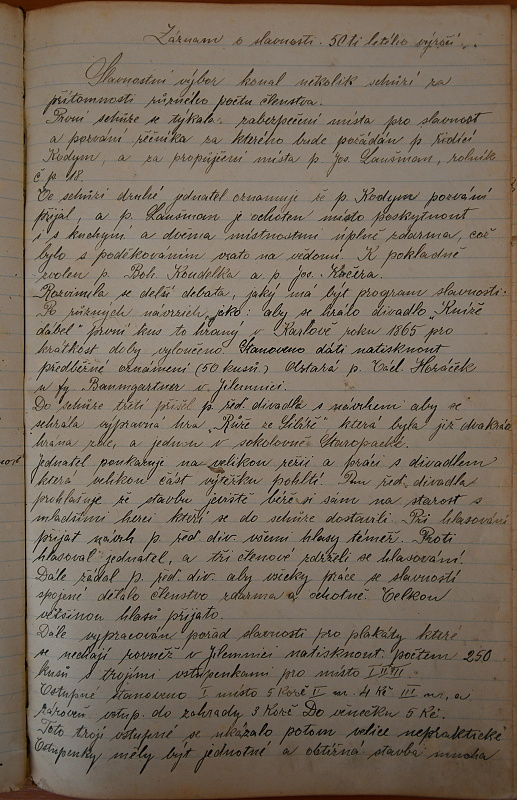 Záznam o slavnosti 50ti letého výročí.
Slavnostní výbor konal několik schůzí za
přítomnosti různého počtu členstva.
První schůze se týkala: zabezpečení místa pro slavnost
a pozvání řečníka za kterého bude požádán p řídící
Kodym, a za propůjčení místa p Jos. Laušman, rolník
č p 18.
Ve schůzi druhé jednatel oznamuje že p. Kodym pozvání
přijal, a p. Laušman je ochoten místo poskytnout
i s kuchyní a dvěma místnostmi úplně zdarma, což
bylo s poděkováním vzato na vědomí. K pokladně
zvolen p. Boh. Koudelka a p. Jos. Kačera.
Rozvinula se delší debata, jaký má být program slavnosti.
Po různých návrzích, jako: aby se hrálo divadlo „Kníže
ďábel" první kus to hraný v Karlově roku 1865 pro
krátkost doby vyloučeno. Stanoveno dáti natisknout
předběžné oznámení (50 kusů) Obstará p. Václ. Hráček
u fy. Baumgartner v Jilemnici.
Do schůze třetí přišel p. řed. divadla s návrhem aby se
sehrála výpravná hra „Růže ze Sibiře" která byla již dvakrát
hrána zde, a jednou v sokolovně Staropacké.
Jednatel poukazuje na velikou režii a práci s divadlem
která velikou část výtěžku pohltí. Pan řed. divadla
prohlašuje že stavbu jeviště béře si sám na starost s
mladšími herci kteří se do schůze dostavili. Při hlasování
přijat návrh p. řed. div. všemi hlasy téměř. Proti
hlasoval jednatel, a tři členové zdrželi se hlasování.
Dále žádal p. řed. div. aby všecky práce se slavností
spojené dělalo členstvo zdarma a ochotně. Celkem
většinou hlasů přijato.
Dále vypracován pořad slavnosti pro plakáty které
se nechají rovněž v Jilemnici natisknout. Počtem 250
kusů s trojími vstupenkami pro místo I II III.
Vstupné stanoveno I místo 5 Korč II m. 4 Kč III m, a
zároveň vstup. do zahrady 3 Korč Do věnečku 5 Kč.
Toto trojí vstupné se ukázalo potom velice nepraktické
Vstupenky měly být jednotné a obtížná stavba mnoha